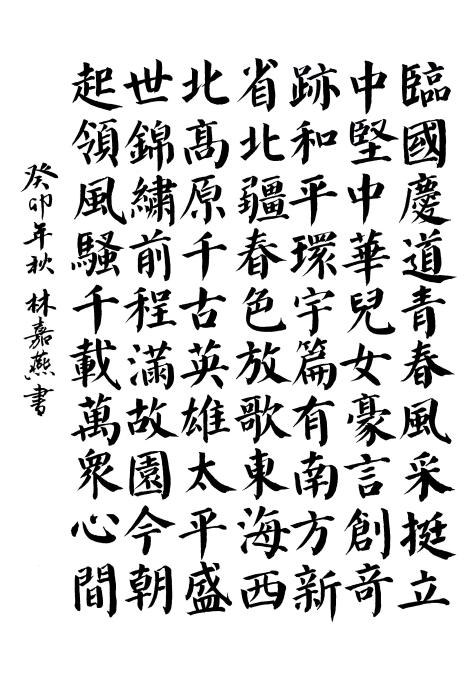 臨國慶道青春風采挺立
中堅中華兒女豪言創奇
跡和平環宇篇有南方新
省北疆春色放歌東海西
北高原千古英雄太平盛
世錦繡前程滿故園今朝
起領風騷千載萬眾心間
癸卯年秋 林嘉燕書